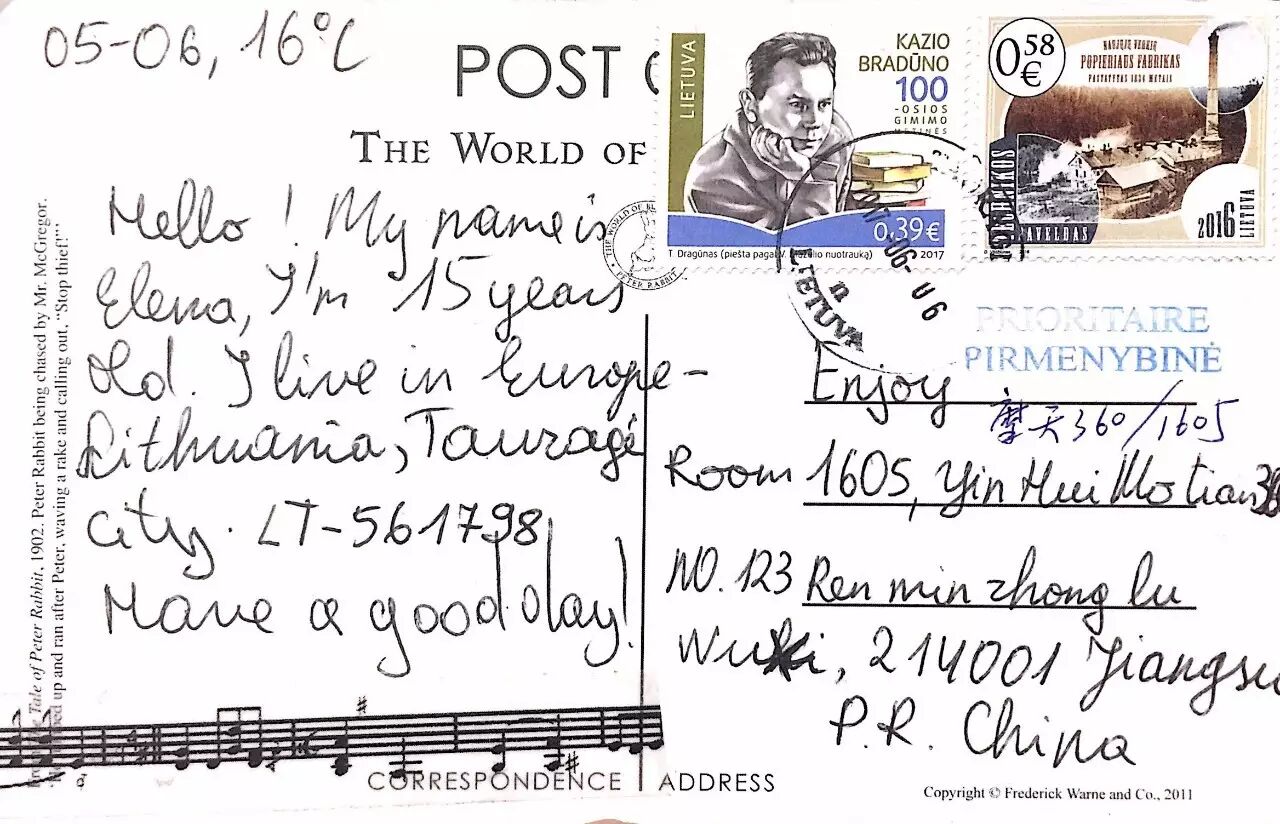 05-06, 16°C
POST
THE WORLD OF
Hello! My name is
Elena, I'm 15 years
old. I live in Europe -
Lithuania, Tauragė
city. LT-561798
Have a good day!
Tale of Peter Rabbit, 1902. Peter Rabbit being chased by Mr. McGregor.
up and ran after Peter, waving a rake and calling out, "Stop thief!"'
LIETUVA
KAZIO
BRADŪNO
100
-OSIOS
GIMIMO
METINĖS
0,39€
T. Dragūnas (piešta pagal V. nuotrauką)
2017
0 58 €
NAUJŲJŲ VERKIŲ
POPIERIAUS FABRIKAS
PASTATYTAS 1834 METAIS
PAVELDAS
2016
LIETUVA
THE WORLD OF
PETER RABBIT
LIETUVA
PRIORITAIRE
PIRMENYBINĖ
Enjoy
摩天360/1605
Room 1605, Yin Hui Mo tian
NO. 123 Ren min zhong lu
Wuxi, 214001 Jiangsu
P.R. China
CORRESPONDENCE
ADDRESS
Copyright © Frederick Warne and Co., 2011